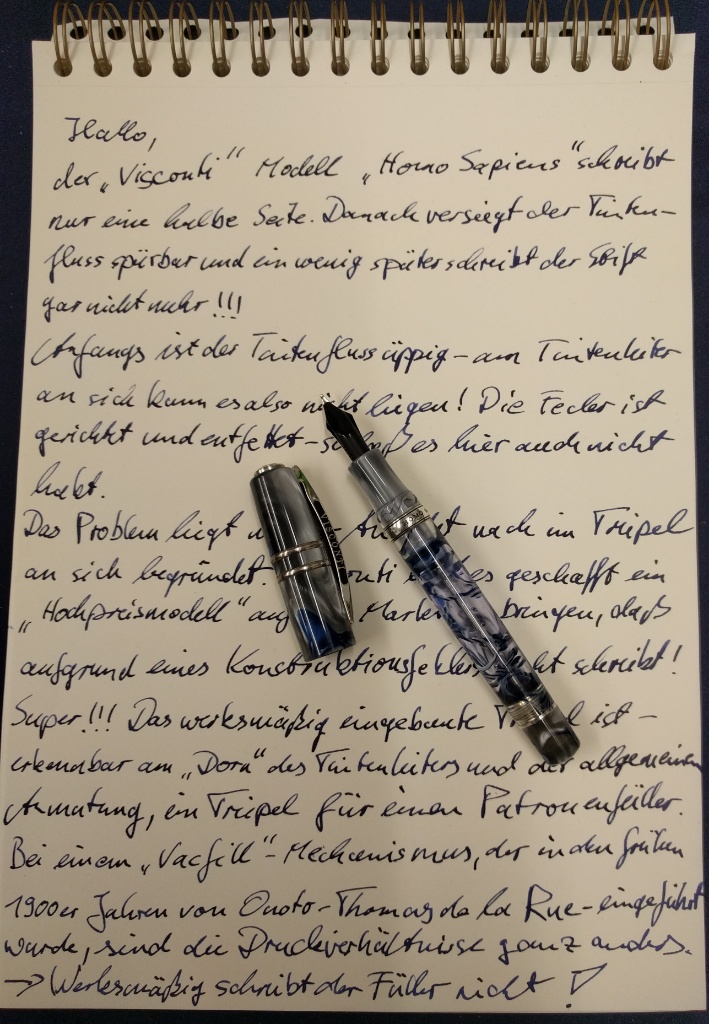 Hallo,
der „Visconti" Modell „Homo Sapiens" schreibt
nur eine halbe Seite. Danach versiegt der Tinten-
fluss spürbar und ein wenig später schreibt der Stift
gar nicht mehr!!!
Anfangs ist der Tintenfluss üppig – am Tintenleiter
an sich kann es also nicht liegen! Die Feder ist
gerichtet und entfettet – es hier auch nicht
hakt.
Das Problem liegt nach im Tripel
an sich begründet. es geschafft ein
„Hochpreismodell" bringen, daß
aufgrund eines Konstruktionsfehlers schreibt!
Super!!! Das werksmäßig eingebaute ist –
erkennbar am „Dorn" des Tintenleiters und der allgemeinen
Anmutung, ein Tripel für einen Patronenfüller.
Bei einem „Vacfill"-Mechanismus, der in den frühen
1900er Jahren von Onoto-Thomas de la Rue-eingeführt
wurde, sind die Druckverhältnisse ganz anders.
→ Werksmäßig schreibt der Füller nicht!
VISCONTI